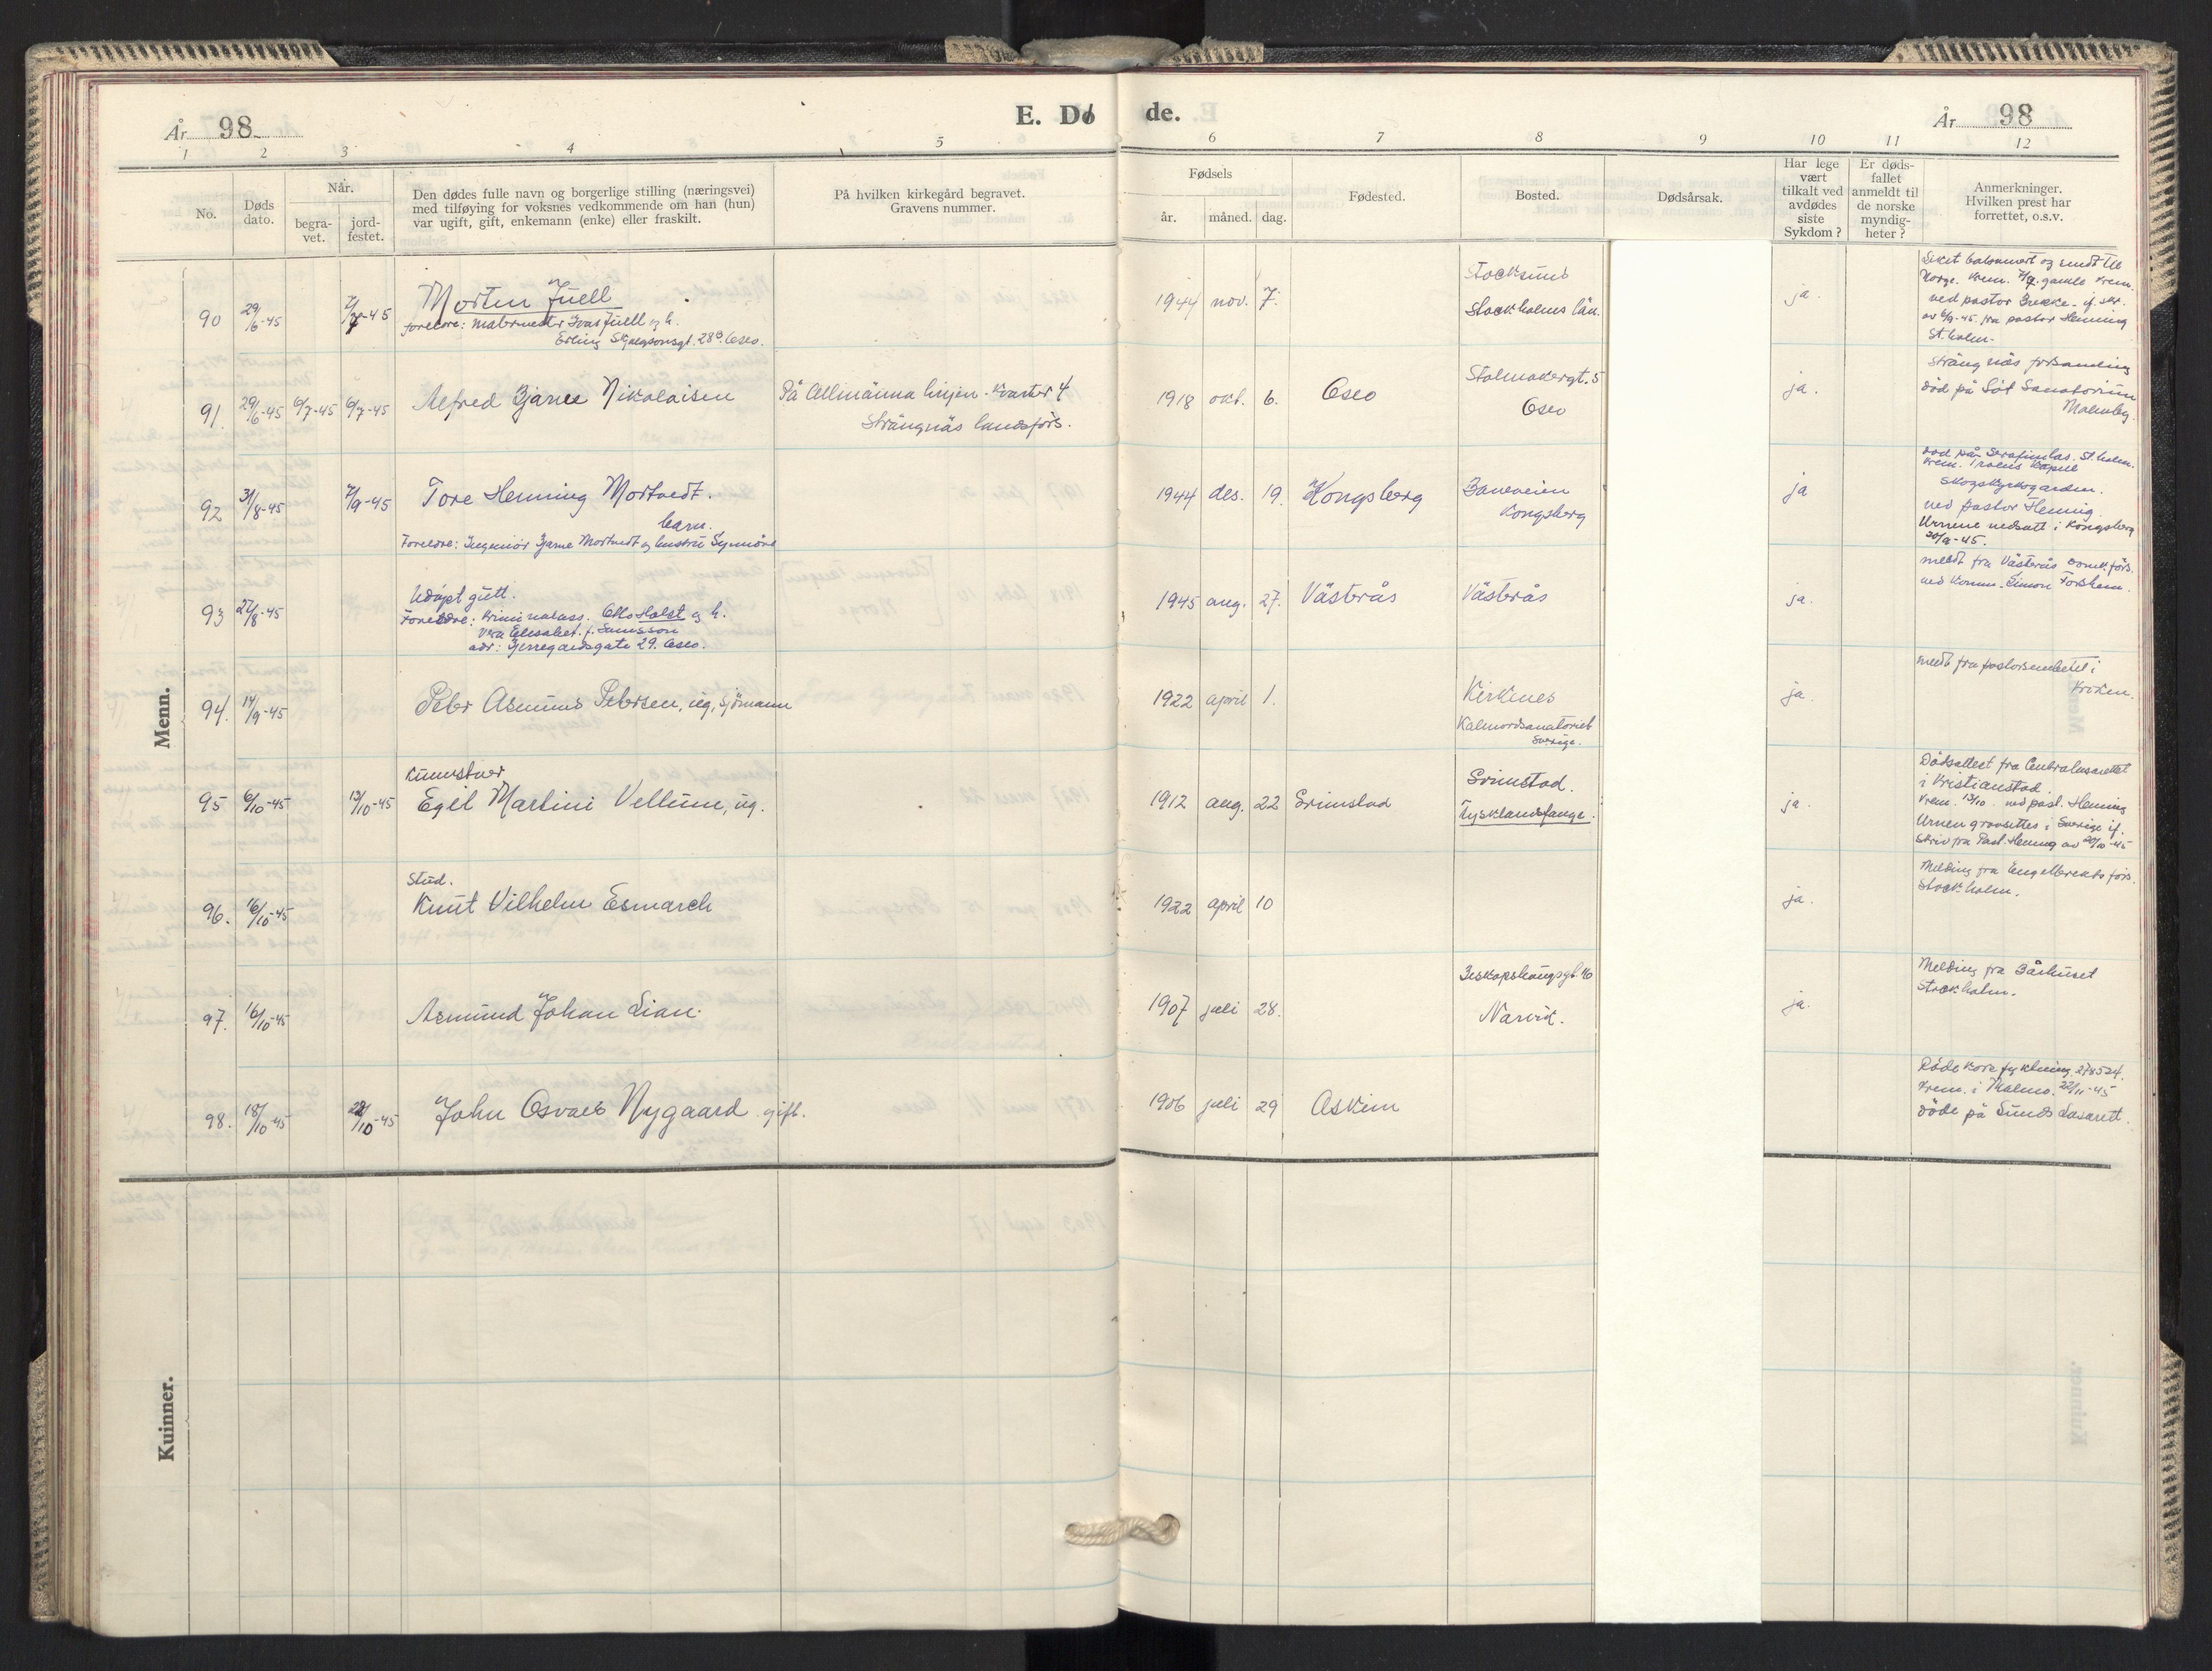 År 98
E. Dø
de.
År 98
1 2 3 4 5 6 7 8 9 10 11 12
No.
Døds dato.
Når.
begra-vet.
jord-festet.
Den dødes fulle navn og borgerlige stilling (næringsvei)
med tilføying for voksnes vedkommende om han (hun)
var ugift, gift, enkemann (enke) eller fraskilt.
På hvilken kirkegård begravet.
Gravens nummer.
Fødsels
år.
måned.
dag.
Fødested.
Bosted.
Dødsårsak.
Har lege
vært
tilkalt ved
avdødes
siste
Sykdom?
Er døds-
fallet
anmeldt til
de norske
myndig-
heter?
Anmerkninger.
Hvilken prest har
forrettet, o.s.v.
Menn.
90 29/6-45 Morten Juell
foreldre: malermester Ivar Juell og h.
Erling Skjalgsonsgt. 28B. Oslo.
1944 nov. 7.
Stocksund
Stockholms län.
ja.
Liket balsamert og sendt til
Norge. Krem. gamle krem.
ved pastor Brekke - if. skr.
fra pastor Henning
St.holm.
91. 29/6-45 6/7-45 6/7-45 Alfred Bjarne Nikolaisen
På Allmänna linjen. Kvarter 4
Strängnäs landsförs.
1918 okt. 6. Oslo
5
Oslo
ja.
Strängnäs forsamling
död på Söt Sanatorium
Malmby.
92 31/8-45 7/9-45 Tore Henning Mortvedt.
barn.
Foreldre: Ingeniør Bjarne Mortvedt og hustru Synnöve
1944 des. 19. Kongsberg
Baneveien
Kongsberg
ja
död på Serafimlas. St.holm.
krem. Trons Kapell
Skogskyrkogården.
ved pastor Hennig.
Urnene nedsatt i Kongsberg
93 27/8-45 Udøpt gutt.
Foreldre: Kriminalass. Otto Holst og h.
Vera Elisabet f. Samsson
adr: Bjerregaardsgate 29. Oslo.
1945 aug. 27. Västerås
Västerås
ja.
meldt fra Västerås domk.förs.
ved Komm. Simon Forshem.
94. 14/9-45 Peder Asmund Pedersen, ug, sjömann
1922 april 1.
Kirkenes
Kalmordsanatoriet
Sverige.
ja.
meldt fra pastorsembetet i
Kroken.
95 6/10-45 13/10-45 Kunstner
Egil Martini Vellum, ug.
1912 aug. 22 Grimstad
Grimstad.
Tysklandsfange.
ja.
Dödsattest fra Centrallasarettet
i Kristianstad.
Krem. 13/10. ved past. Henning
Urnen gravsettes i Sverige if.
skriv fra Past. Henning av 20/10-45
96. 16/10-45 Stud.
Knut Vilhelm Esmarch
1922 april 10
ja.
Melding fra Engelbrekts förs.
Stockholm.
97. 16/10-45 Asmund Johan Lian.
1907 juli 28.
Biskopshaugsgt. 16
Narvik.
ja.
Melding fra Bårhuset
Stockholm.
98. 18/10-45 John Osvald Nygaard. gift.
1906 juli 29 Askim
Röde Kors flyktning. 278524.
Krem. i Malmö. 22/11-45
döde på Lunds Lasarett.
Kuinner.